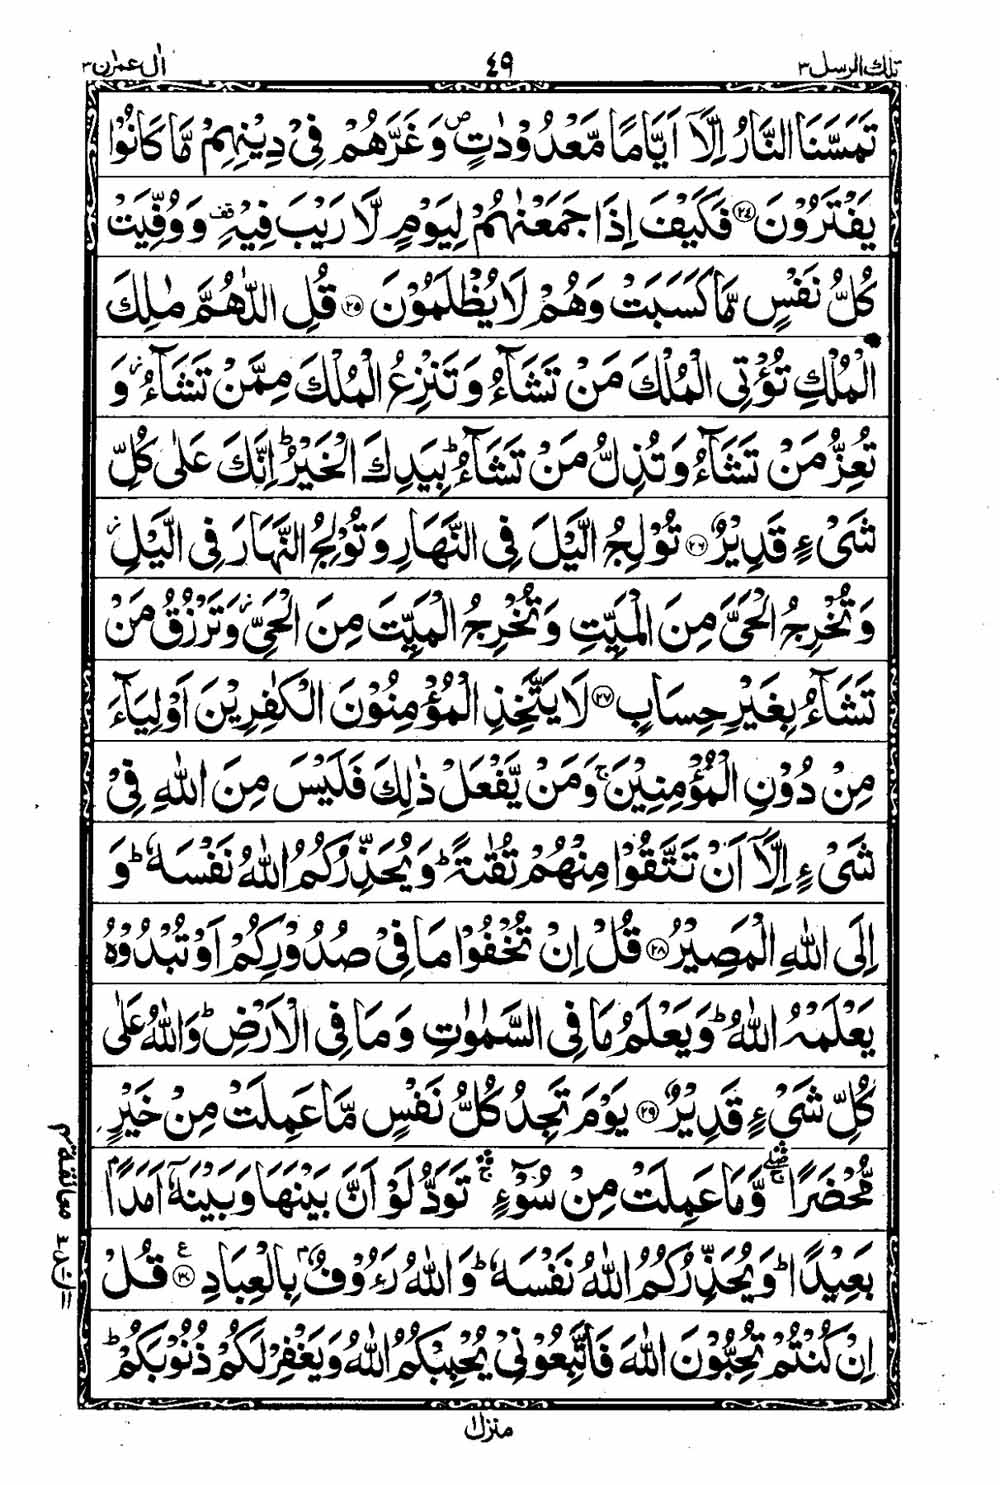 تلك الرسل ٣ ٤٩ اٰل عمرٰن ٣
تَمَسَّنَا النَّارُ اِلَّاۤ اَيَّامًا مَّعْدُوْدٰتٍ ۪ وَغَرَّهُمْ فِیْ دِيْنِهِمْ مَّا كَانُوْا
يَفْتَرُوْنَ ﴿۲۴﴾ فَكَيْفَ اِذَا جَمَعْنٰهُمْ لِيَوْمٍ لَّا رَيْبَ فِيْهِ ۫ وَوُفِّيَتْ
كُلُّ نَفْسٍ مَّا كَسَبَتْ وَهُمْ لَا يُظْلَمُوْنَ ﴿۲۵﴾ قُلِ اللّٰهُمَّ مٰلِكَ
الْمُلْكِ تُؤْتِی الْمُلْكَ مَنْ تَشَآءُ وَتَنْزِعُ الْمُلْكَ مِمَّنْ تَشَآءُ ؗ وَ
تُعِزُّ مَنْ تَشَآءُ وَتُذِلُّ مَنْ تَشَآءُ ؕ بِيَدِكَ الْخَيْرُ ؕ اِنَّكَ عَلٰی كُلِّ
شَیْءٍ قَدِيْرٌ ﴿۲۶﴾ تُوْلِجُ الَّيْلَ فِی النَّهَارِ وَتُوْلِجُ النَّهَارَ فِی الَّيْلِ ؗ
وَتُخْرِجُ الْحَیَّ مِنَ الْمَيِّتِ وَتُخْرِجُ الْمَيِّتَ مِنَ الْحَیِّ ؗ وَتَرْزُقُ مَنْ
تَشَآءُ بِغَيْرِ حِسَابٍ ﴿۲۷﴾ لَا يَتَّخِذِ الْمُؤْمِنُوْنَ الْكٰفِرِيْنَ اَوْلِيَآءَ
مِنْ دُوْنِ الْمُؤْمِنِيْنَ ۚ وَمَنْ يَّفْعَلْ ذٰلِكَ فَلَيْسَ مِنَ اللّٰهِ فِیْ
شَیْءٍ اِلَّاۤ اَنْ تَتَّقُوْا مِنْهُمْ تُقٰىةً ؕ وَيُحَذِّرُكُمُ اللّٰهُ نَفْسَهٗ ؕ وَ
اِلَی اللّٰهِ الْمَصِيْرُ ﴿۲۸﴾ قُلْ اِنْ تُخْفُوْا مَا فِیْ صُدُوْرِكُمْ اَوْ تُبْدُوْهُ
يَعْلَمْهُ اللّٰهُ ؕ وَيَعْلَمُ مَا فِی السَّمٰوٰتِ وَمَا فِی الْاَرْضِ ؕ وَاللّٰهُ عَلٰی
كُلِّ شَیْءٍ قَدِيْرٌ ﴿۲۹﴾ يَوْمَ تَجِدُ كُلُّ نَفْسٍ مَّا عَمِلَتْ مِنْ خَيْرٍ
مُّحْضَرًا ۛۖۚ وَّمَا عَمِلَتْ مِنْ سُوْٓءٍ ۛۚ تَوَدُّ لَوْ اَنَّ بَيْنَهَا وَبَيْنَهٗۤ اَمَدًۢا
بَعِيْدًا ؕ وَيُحَذِّرُكُمُ اللّٰهُ نَفْسَهٗ ؕ وَاللّٰهُ رَءُوْفٌۢ بِالْعِبَادِ ﴿۳۰﴾ ع قُلْ
اِنْ كُنْتُمْ تُحِبُّوْنَ اللّٰهَ فَاتَّبِعُوْنِیْ يُحْبِبْكُمُ اللّٰهُ وَيَغْفِرْ لَكُمْ ذُنُوْبَكُمْ ؕ
منزل ١
معانقة